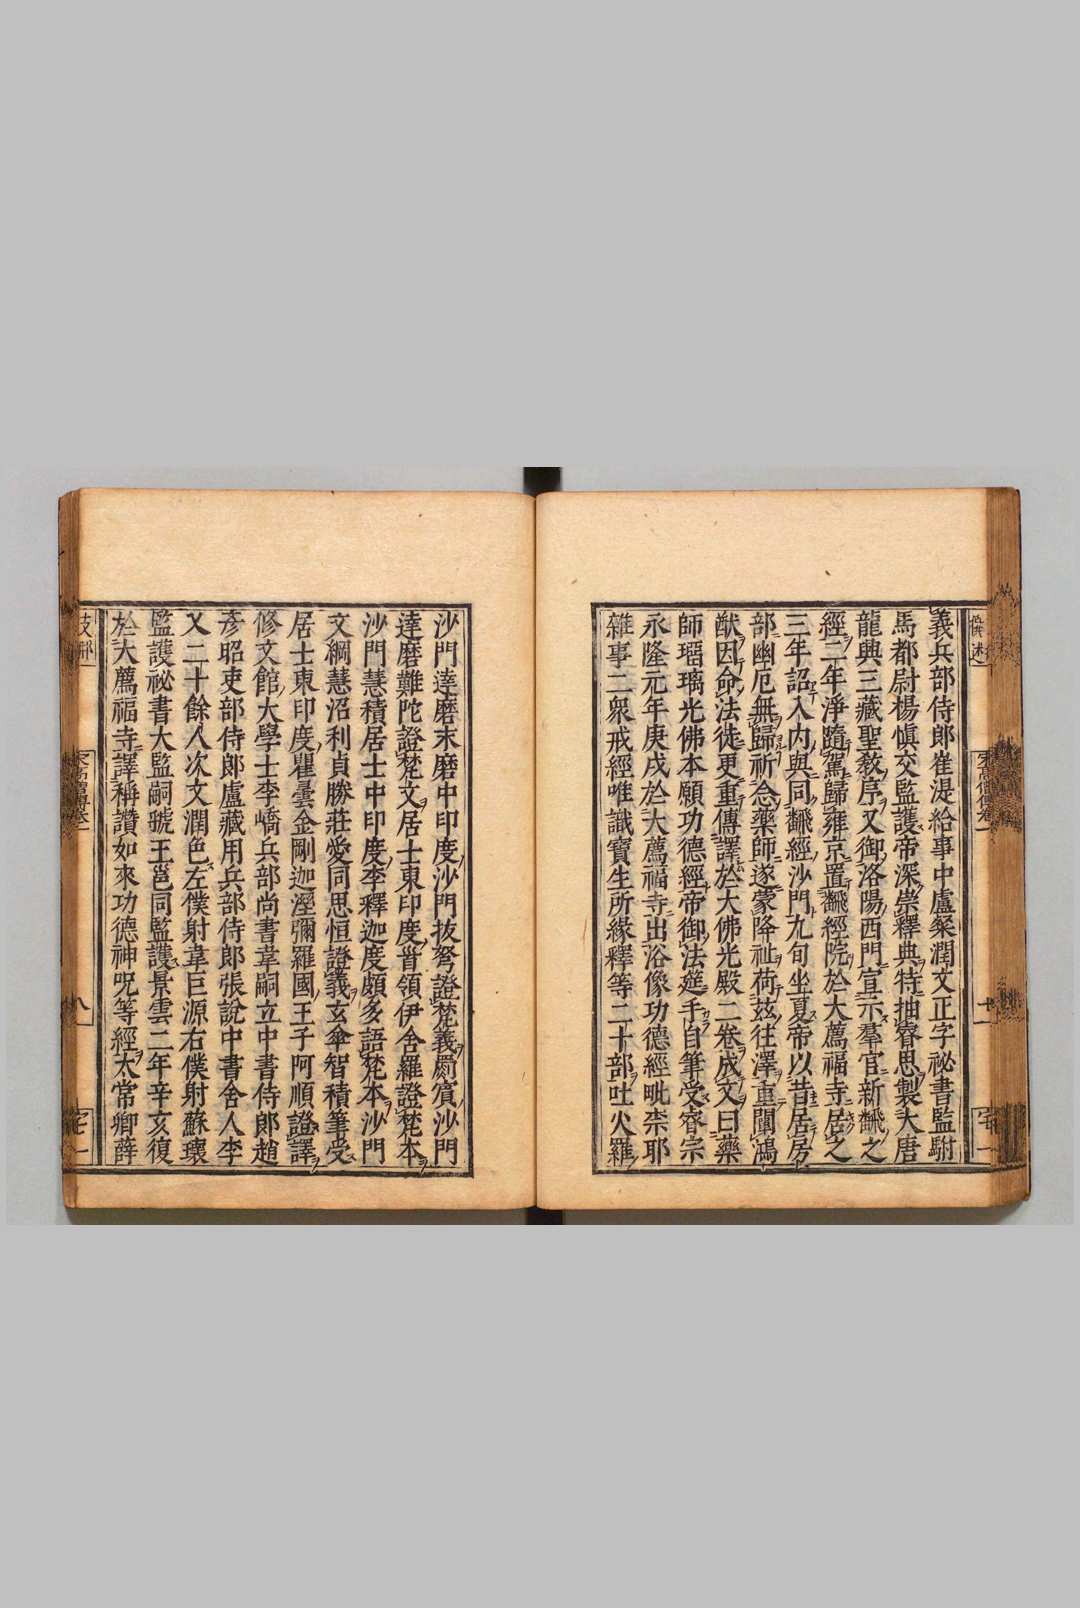 義兵部侍郎崔湜給事中盧粲潤文正字祕書監駙
馬都尉楊慎交監護帝深崇釋典特抽睿思製大唐
龍興三藏聖教序又御洛陽西門宣示羣官新飜之
經二年淨隨駕歸雍京置飜經院於大薦福寺居之
三年詔入內與同飜經沙門九旬坐夏帝以昔居房
部幽厄無歸祈念藥師遂蒙降祉荷茲往澤重闡鴻
猷因命法徒更重傳譯於大佛光殿二卷成文曰藥
師瑠璃光佛本願功德經帝御法筵手自筆受睿宗
永隆元年庚戌於大薦福寺出浴像功德經毗柰耶
雜事二衆戒經唯識寶生所緣釋等二十部吐火羅
沙門達磨末磨中印度沙門拔弩證梵義罽賓沙門
達磨難陀證梵文居士東印度首領伊舍羅證梵本
沙門慧積居士中印度李釋迦度頗多語梵本沙門
文綱慧沼利貞勝莊愛同思恒證義玄傘智積筆受
居士東印度瞿曇金剛迦溼彌羅國王子阿順證譯
修文館大學士李嶠兵部尚書韋嗣立中書侍郎趙
彥昭吏部侍郎盧藏用兵部侍郎張說中書舍人李
又二十餘人次文潤色左僕射韋巨源右僕射蘇瓌
監護祕書大監嗣虢王邕同監護景雲二年辛亥復
於大薦福寺譯稱讚如來功德神呪等經太常卿薛
八